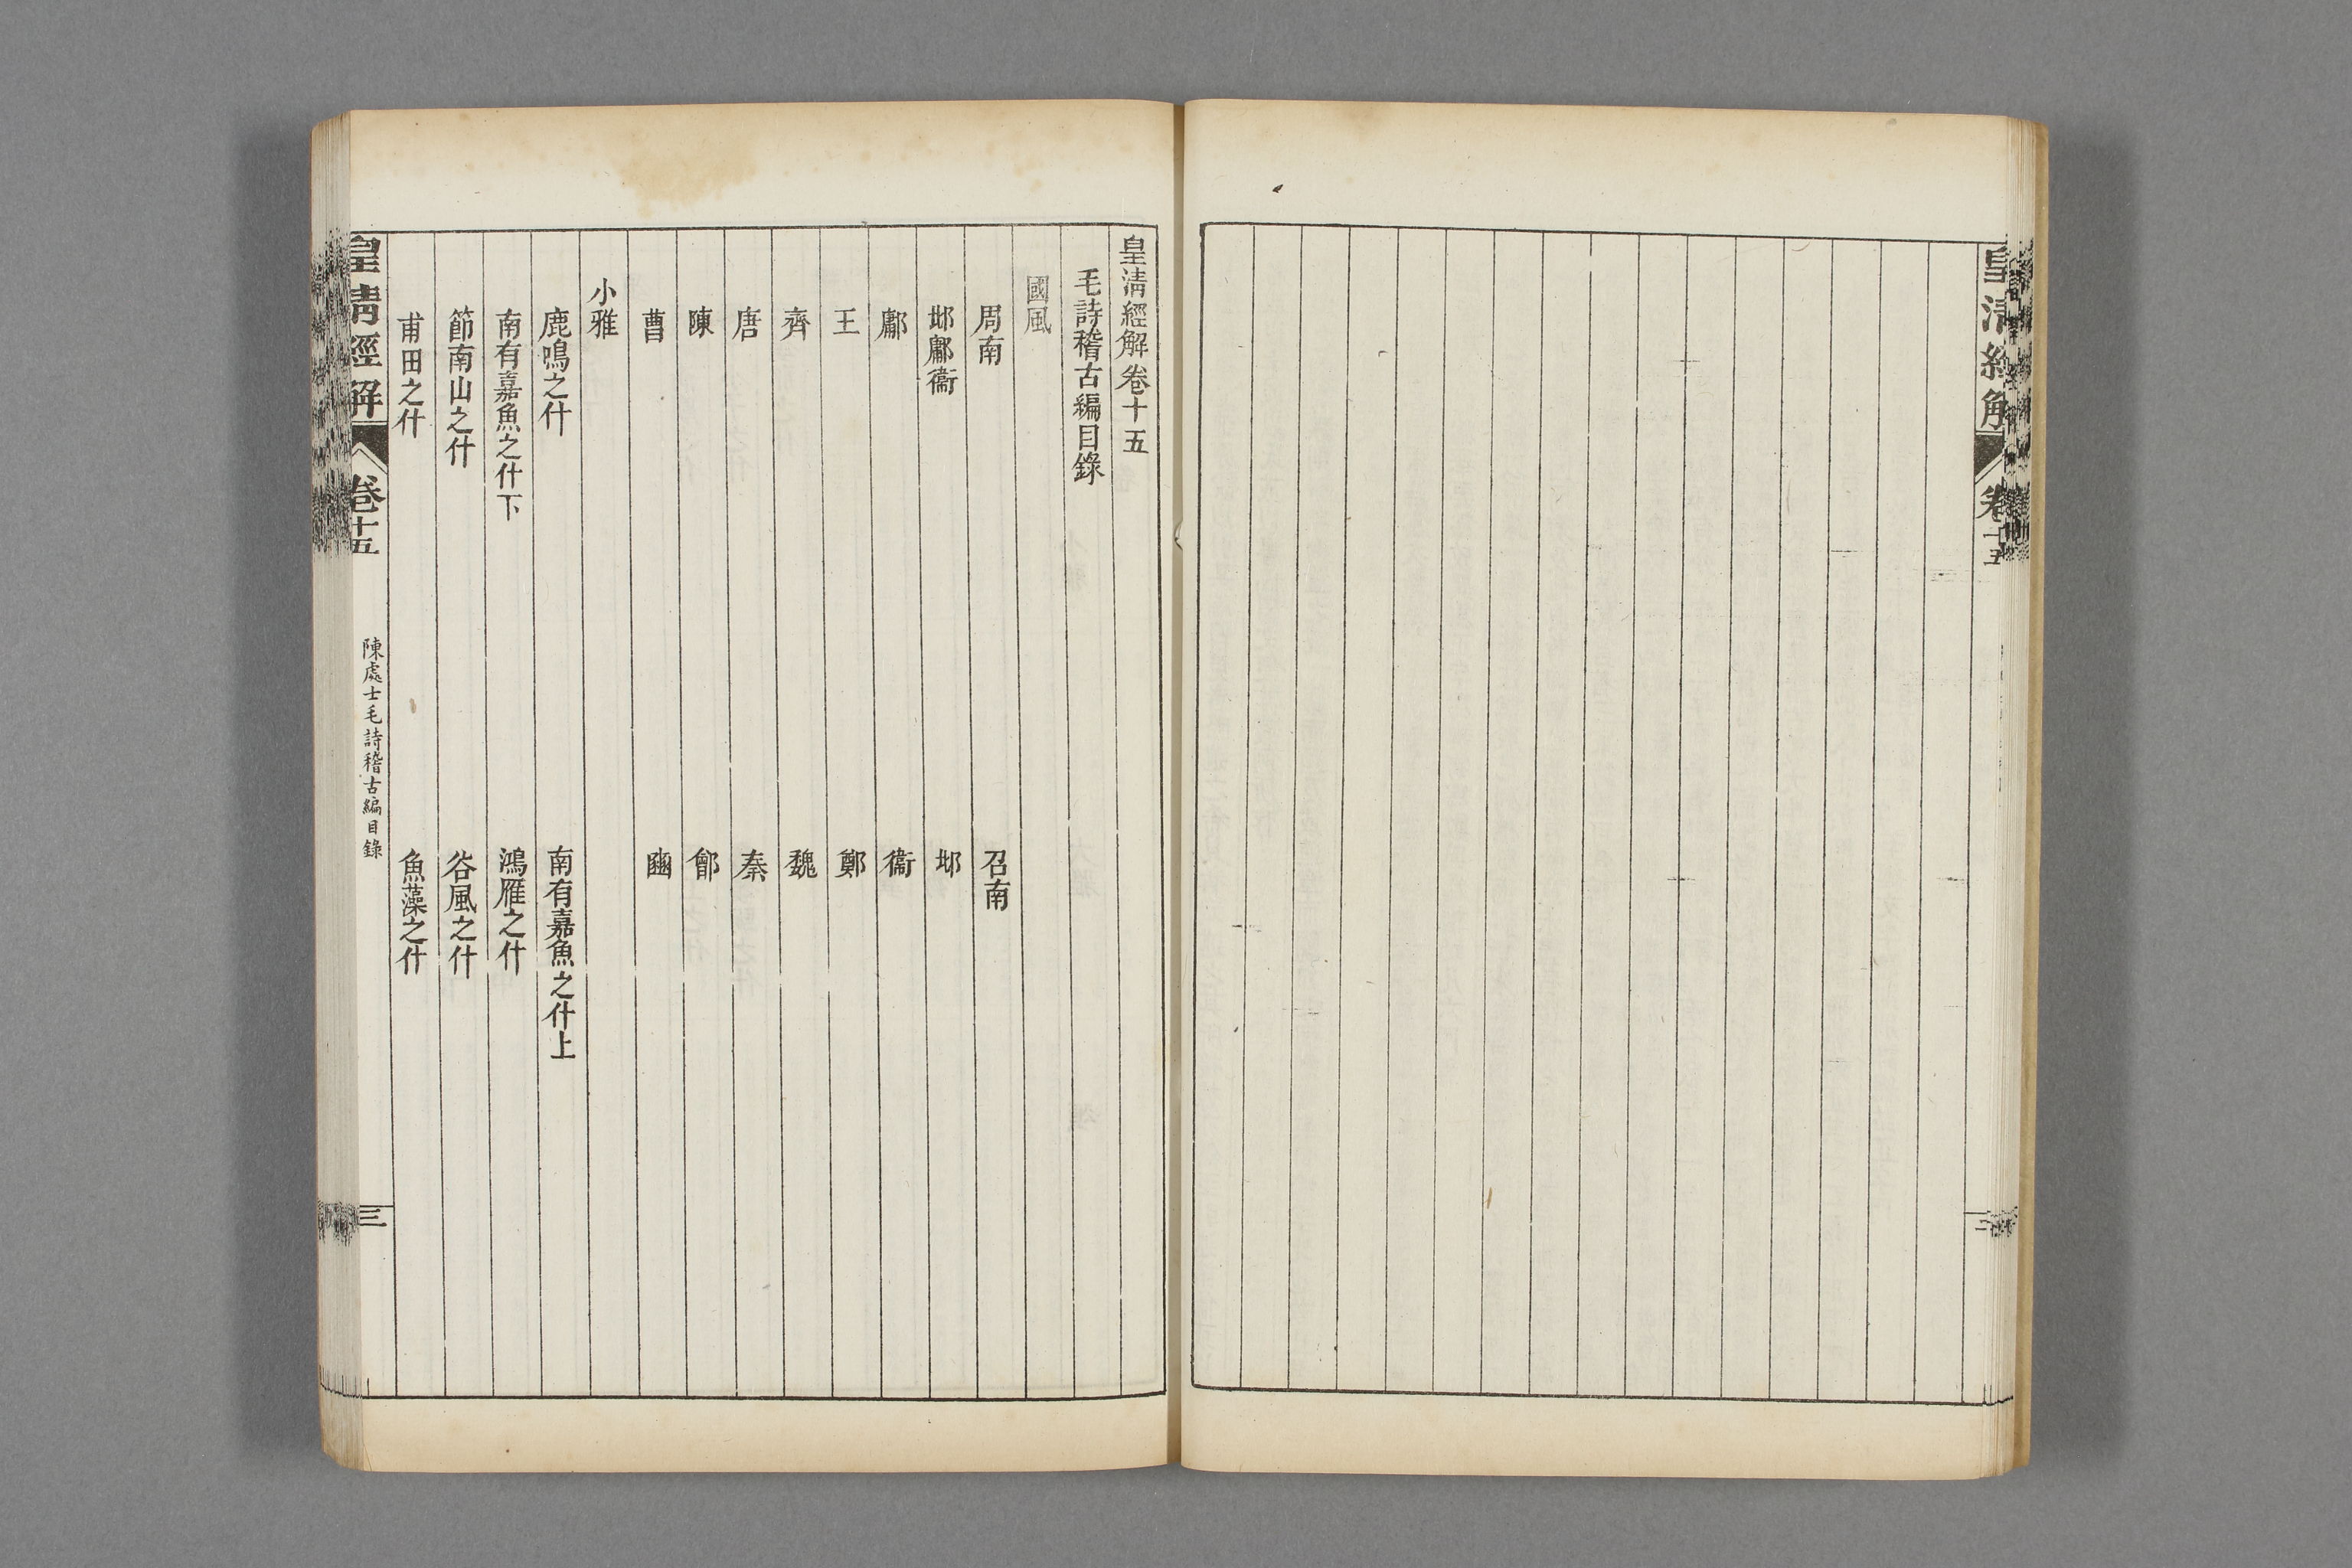 皇清經解
卷十五
二
皇清經解卷十五
毛詩稽古編目錄
國風
周南
召南
邶鄘衞
邶
鄘
衞
王
鄭
齊
魏
唐
秦
陳
鄶
曹
豳
小雅
鹿鳴之什
南有嘉魚之什上
南有嘉魚之什下
鴻雁之什
節南山之什
谷風之什
甫田之什
魚藻之什
皇清經解
卷十五
陳處士毛詩稽古編目錄
三